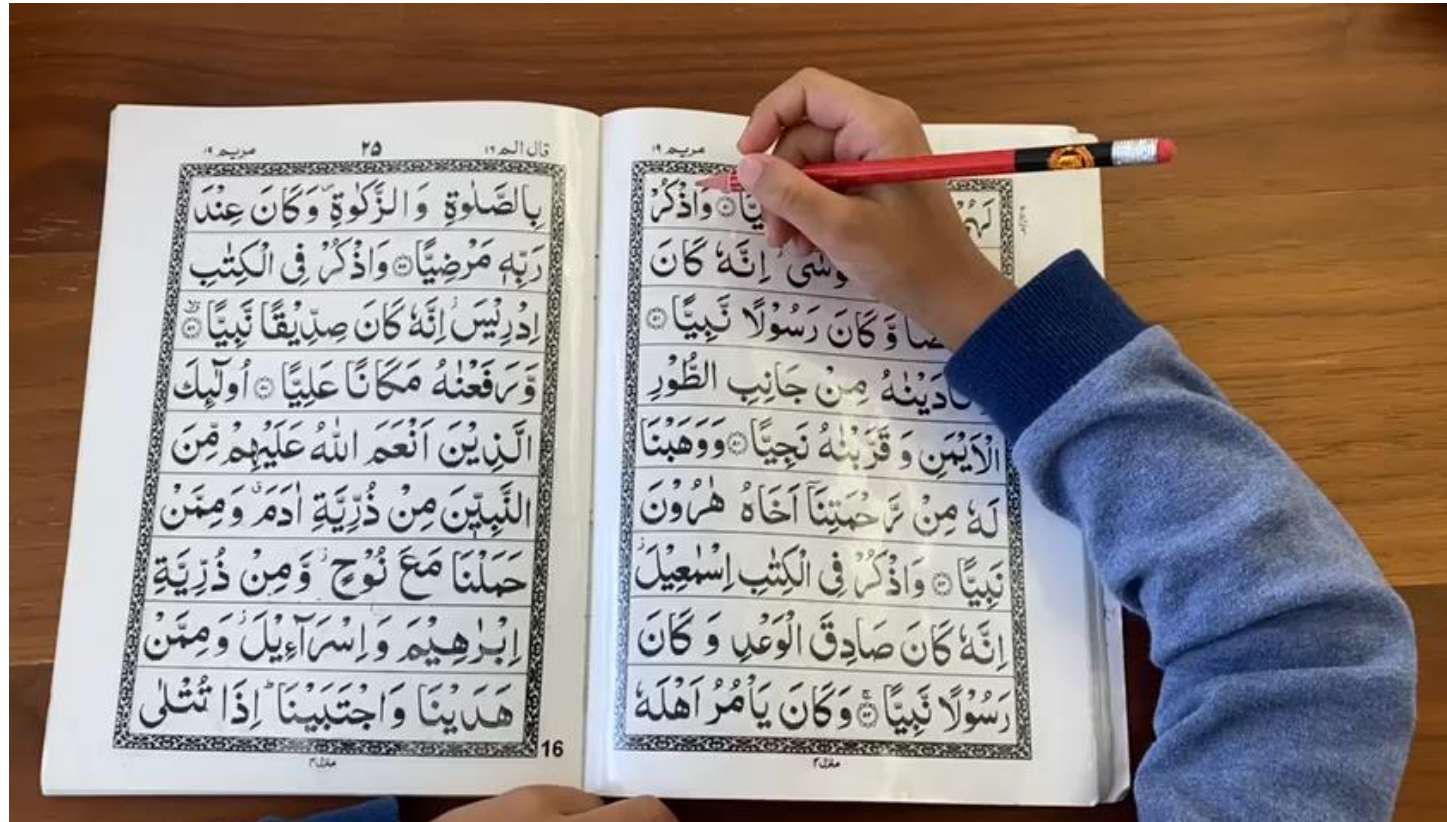 مريم ١٩
وَاذْكُرْ
اِنَّهٗ كَانَ
وَّ كَانَ رَسُوْلًا نَّبِيًّا ۝٥١
مِنْ جَانِبِ الطُّوْرِ
الْاَيْمَنِ وَ قَرَّبْنٰهُ نَجِيًّا ۝٥٢ وَوَهَبْنَا
لَهٗ مِنْ رَّحْمَتِنَاۤ اَخَاهُ هٰرُوْنَ
نَبِيًّا ۝٥٣ وَاذْكُرْ فِى الْكِتٰبِ اِسْمٰعِيْلَ ز
اِنَّهٗ كَانَ صَادِقَ الْوَعْدِ وَ كَانَ
رَسُوْلًا نَّبِيًّا ۝٥٤ وَكَانَ يَاْمُرُ اَهْلَهٗ
منزل ٤
قال الم ١٦ ٢٥ مريم ١٩
بِالصَّلٰوةِ وَ الزَّكٰوةِ ص وَكَانَ عِنْدَ
رَبِّهٖ مَرْضِيًّا ۝٥٥ وَاذْكُرْ فِى الْكِتٰبِ
اِدْرِيْسَ ز اِنَّهٗ كَانَ صِدِّيْقًا نَّبِيًّا ۝٥٦
وَّ رَفَعْنٰهُ مَكَانًا عَلِيًّا ۝٥٧ اُولٰٓئِكَ
الَّذِيْنَ اَنْعَمَ اللّٰهُ عَلَيْهِمْ مِّنَ
النَّبِيّٖنَ مِنْ ذُرِّيَّةِ اٰدَمَ ق وَمِمَّنْ
حَمَلْنَا مَعَ نُوْحٍ ز وَّمِنْ ذُرِّيَّةِ
اِبْرٰهِيْمَ وَ اِسْرَآءِيْلَ ز وَمِمَّنْ
هَدَيْنَا وَ اجْتَبَيْنَا ط اِذَا تُتْلٰى
16
منزل ٤